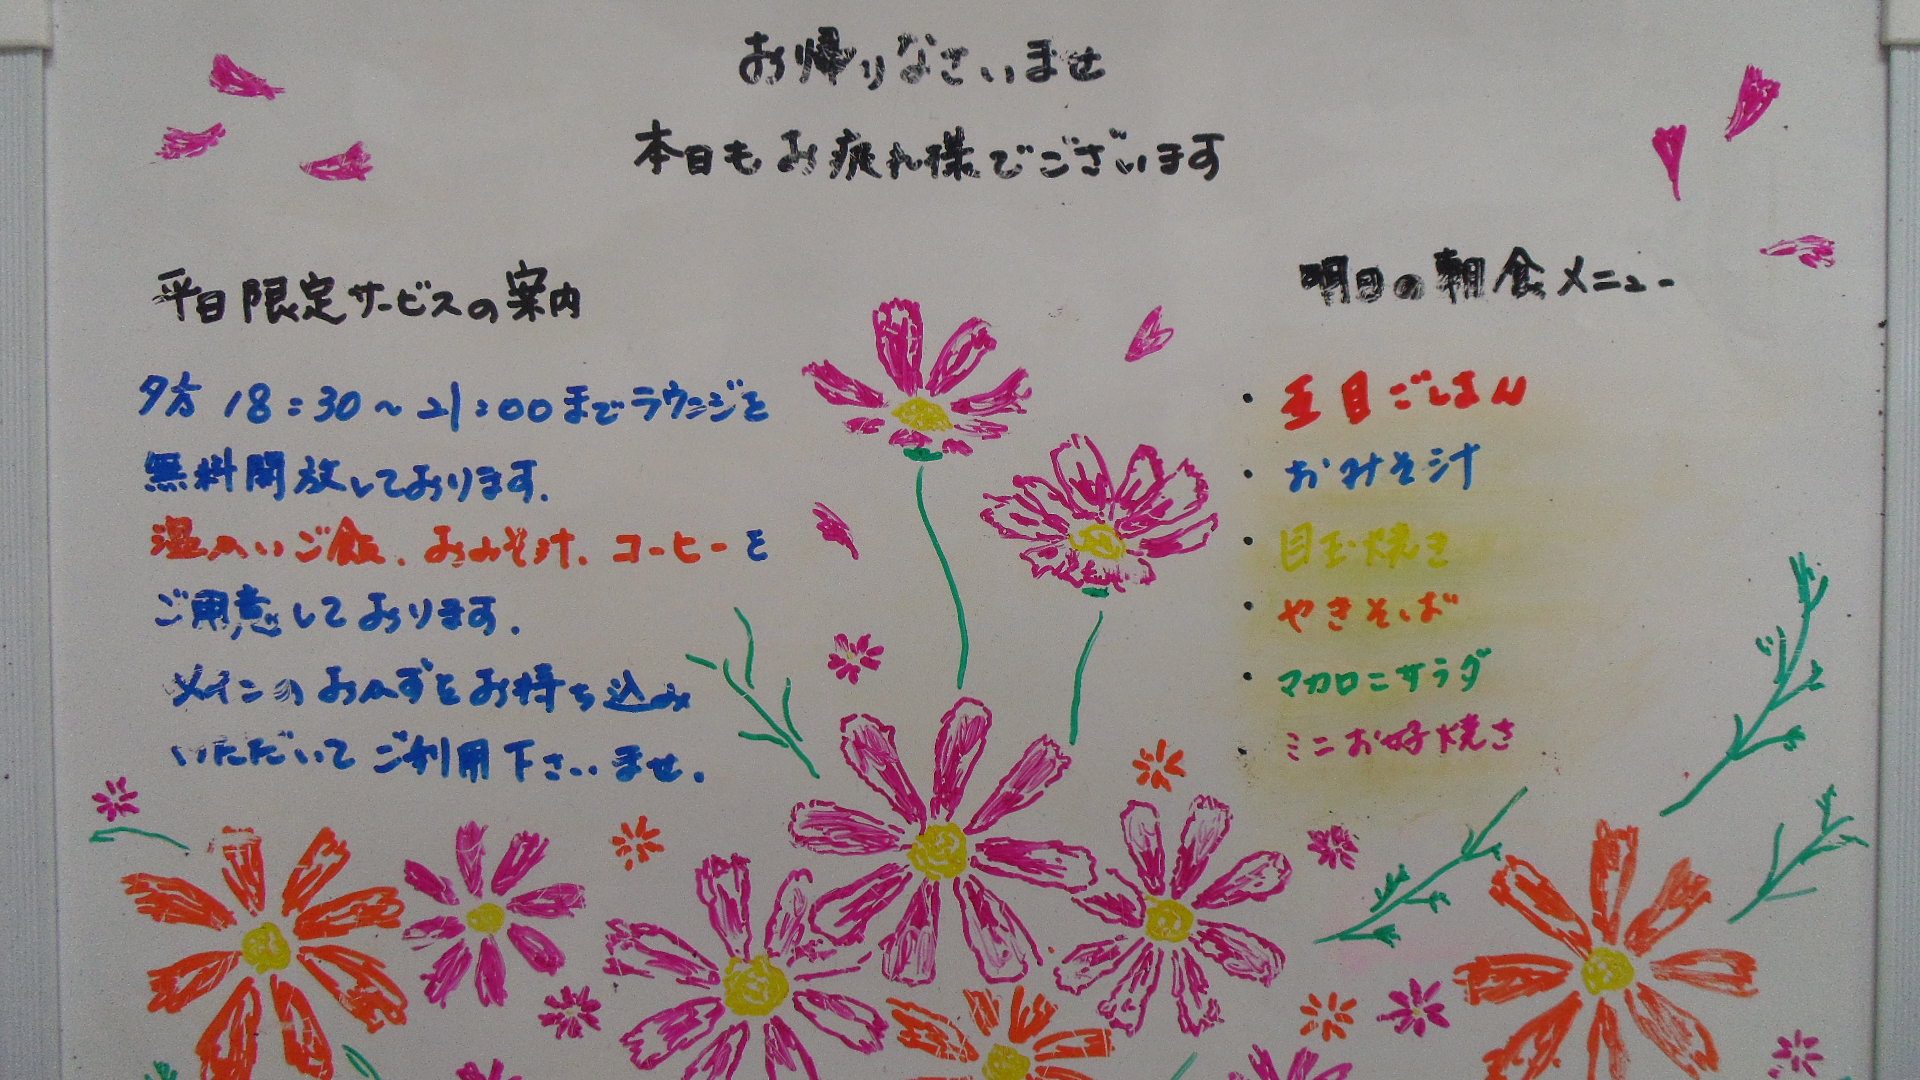 お帰りなさいませ
本日もお疲れ様でございます
平日限定サービスの案内
夕方 18:30~21:00までラウンジを
無料開放しております.
温かいご飯.おみそ汁.コーヒーを
ご用意しております.
メインのおかずをお持ち込み
いただいてご利用下さいませ.
明日の朝食メニュー
・五目ごはん
・おみそ汁
・目玉焼き
・やきそば
・マカロニサラダ
・ミニお好焼き